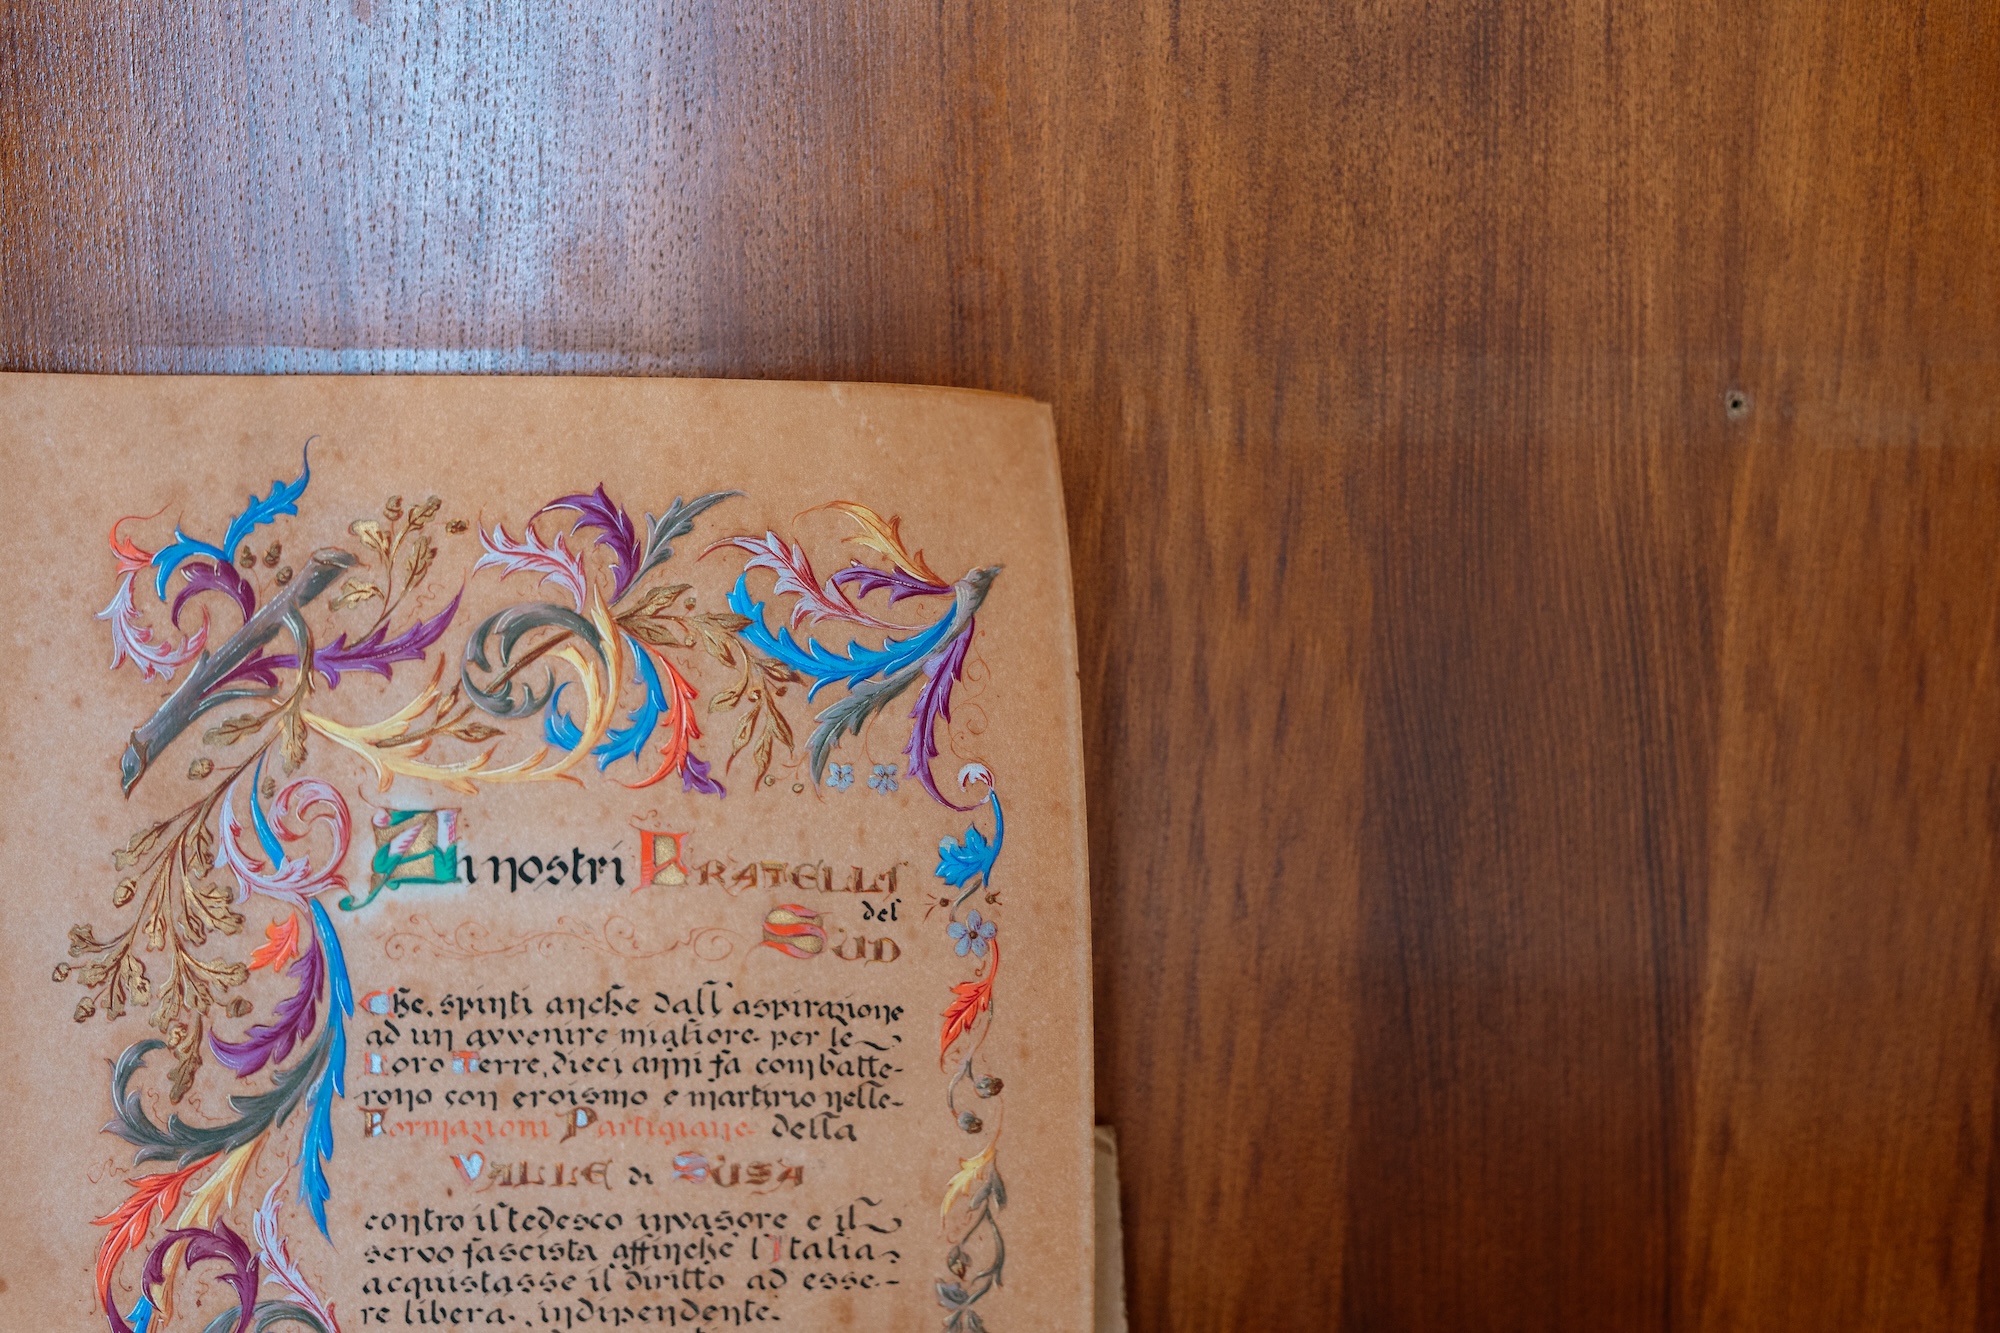 Ai nostri FRATELLI
del
SUD
Che, spinti anche dall'aspirazione
ad un avvenire migliore per le
Loro Terre, dieci anni fa combatte-
rono con eroismo e martirio nelle
Formazioni Partigiane della
VALLE di SUSA
contro il tedesco invasore e il
servo fascista affinchè l'Italia
acquistasse il diritto ad esse-
re libera, indipendente.